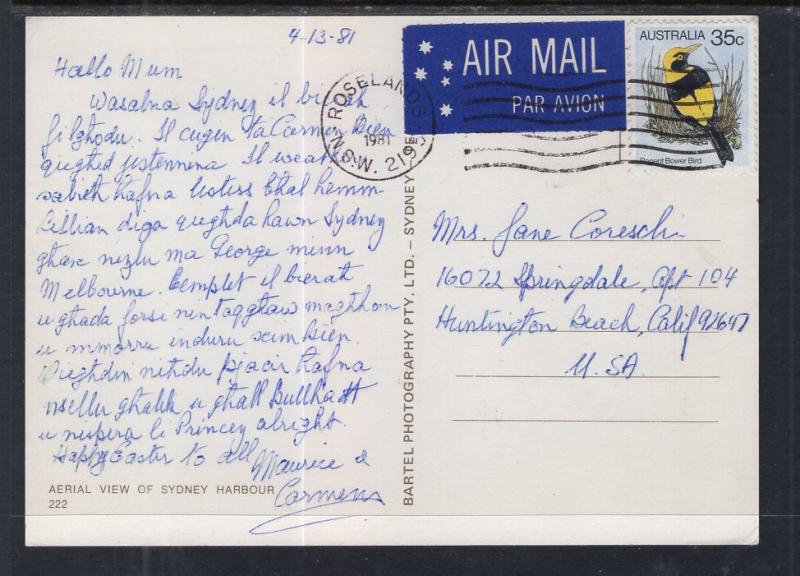 4-13-81
Hallo Mum
Wasalna Sydney il bierah
fil ghodu. Il cugin ta Carmen kien
qieghed jistennena. Il weather
sabieh hafna bhal hemm
Lillian diga qieghda hawn Sydney
ghax nizlu ma George minn
Melbourne. Cemplet il bierah
u ghada forsi nintaqghaw maghhom
u mmorru induru xim kien
Qieghdin nithdu pjacir hafna
nsellu ghalik u ghall
u nispera li Princey alright.
Happy Easter to all
Maurice &
Carmena
AERIAL VIEW OF SYDNEY HARBOUR
222
BARTEL PHOTOGRAPHY PTY. LTD. – SYDNEY
AIR MAIL
PAR AVION
ROSELANDS
1981
N.S.W. 2196
AUSTRALIA 35c
Regent Bower Bird
Mrs. Jane Coreschi
16072 Springdale, Apt 104
Huntington Beach, Calif 92647
U.S.A.